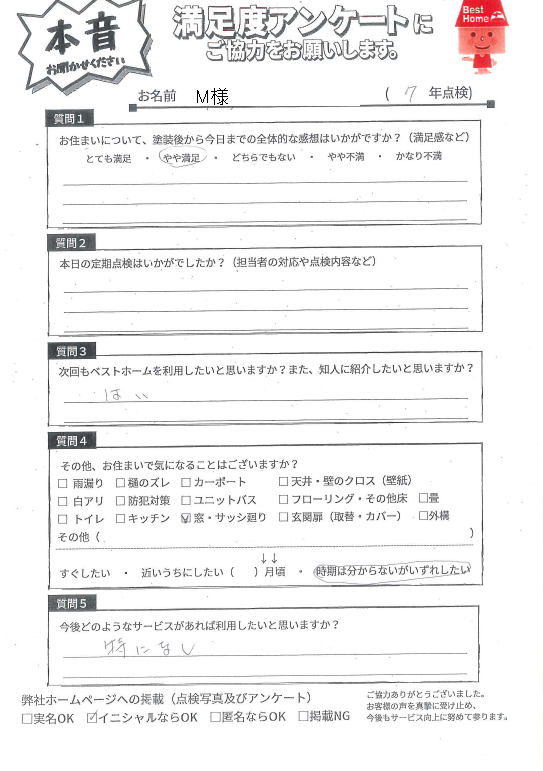 本音
お聞かせください
満足度アンケートに
ご協力をお願いします。
Best
Home
お名前 M様 ( 7 年点検)
質問1
お住まいについて、塗装後から今日までの全体的な感想はいかがですか?(満足感など)
とても満足 ・ やや満足 ・ どちらでもない ・ やや不満 ・ かなり不満
質問2
本日の定期点検はいかがでしたか?(担当者の対応や点検内容など)
質問3
次回もベストホームを利用したいと思いますか?また、知人に紹介したいと思いますか?
はい
質問4
その他、お住まいで気になることはございますか?
□ 雨漏り □ 樋のズレ □ カーポート □ 天井・壁のクロス(壁紙)
□ 白アリ □ 防犯対策 □ ユニットバス □ フローリング・その他床 □ 畳
□ トイレ □ キッチン ☑ 窓・サッシ廻り □ 玄関扉(取替・カバー) □ 外構
その他( )
↓↓
すぐしたい ・ 近いうちにしたい( )月頃 ・ 時期は分からないがいずれしたい
質問5
今後どのようなサービスがあれば利用したいと思いますか?
特になし
弊社ホームページへの掲載(点検写真及びアンケート)
□実名OK ☑イニシャルならOK □匿名ならOK □掲載NG
ご協力ありがとうございました。
お客様の声を真摯に受け止め、
今後もサービス向上に努めて参ります。